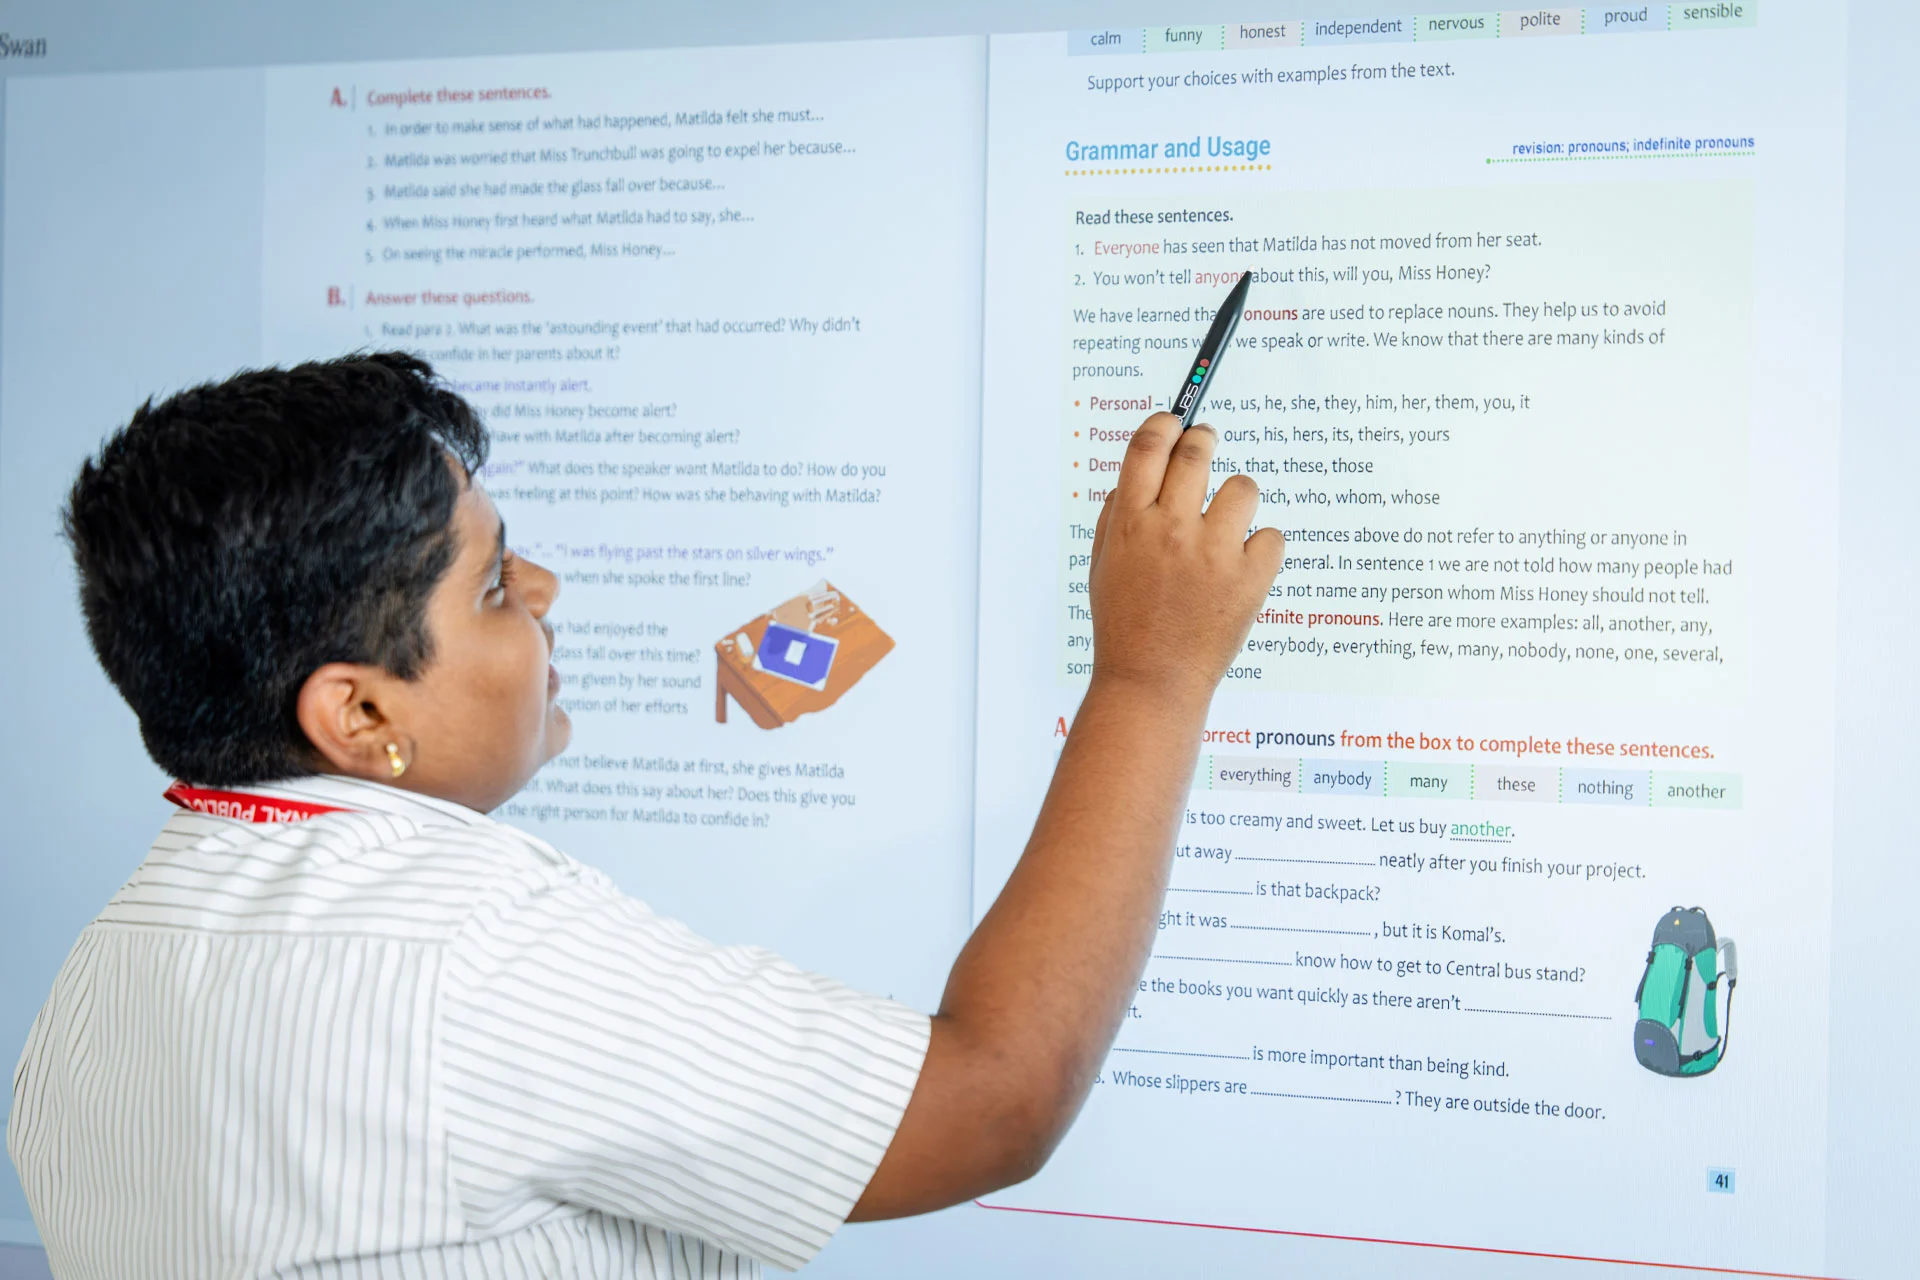 Swan
A. Complete these sentences.
1. In order to make sense of what had happened, Matilda felt she must...
2. Matilda was worried that Miss Trunchbull was going to expel her because...
3. Matilda said she had made the glass fall over because...
4. When Miss Honey first heard what Matilda had to say, she...
5. On seeing the miracle performed, Miss Honey...
B. Answer these questions.
1. Read para 2. What was the 'astounding event' that had occurred? Why didn't
confide in her parents about it?
became instantly alert.
did Miss Honey become alert?
have with Matilda after becoming alert?
again!" What does the speaker want Matilda to do? How do you
was feeling at this point? How was she behaving with Matilda?
"... "I was flying past the stars on silver wings."
when she spoke the first line?
had enjoyed the
glass fall over this time?
given by her sound
of her efforts
not believe Matilda at first, she gives Matilda
What does this say about her? Does this give you
the right person for Matilda to confide in?
calm funny honest independent nervous polite proud sensible
Support your choices with examples from the text.
Grammar and Usage
revision: pronouns; indefinite pronouns
Read these sentences.
1. Everyone has seen that Matilda has not moved from her seat.
2. You won't tell anyone about this, will you, Miss Honey?
We have learned tha onouns are used to replace nouns. They help us to avoid
repeating nouns w we speak or write. We know that there are many kinds of
pronouns.
• Personal – I , we, us, he, she, they, him, her, them, you, it
• Posses ours, his, hers, its, theirs, yours
• Dem this, that, these, those
• Int hich, who, whom, whose
The entences above do not refer to anything or anyone in
par eneral. In sentence 1 we are not told how many people had
see es not name any person whom Miss Honey should not tell.
The efinite pronouns. Here are more examples: all, another, any,
any , everybody, everything, few, many, nobody, none, one, several,
som eone
A orrect pronouns from the box to complete these sentences.
everything anybody many these nothing another
is too creamy and sweet. Let us buy another.
ut away ............ neatly after you finish your project.
............ is that backpack?
ght it was ............, but it is Komal's.
............ know how to get to Central bus stand?
e the books you want quickly as there aren't ............
ft.
............ is more important than being kind.
8. Whose slippers are ............? They are outside the door.
41
NAL PUBLIC